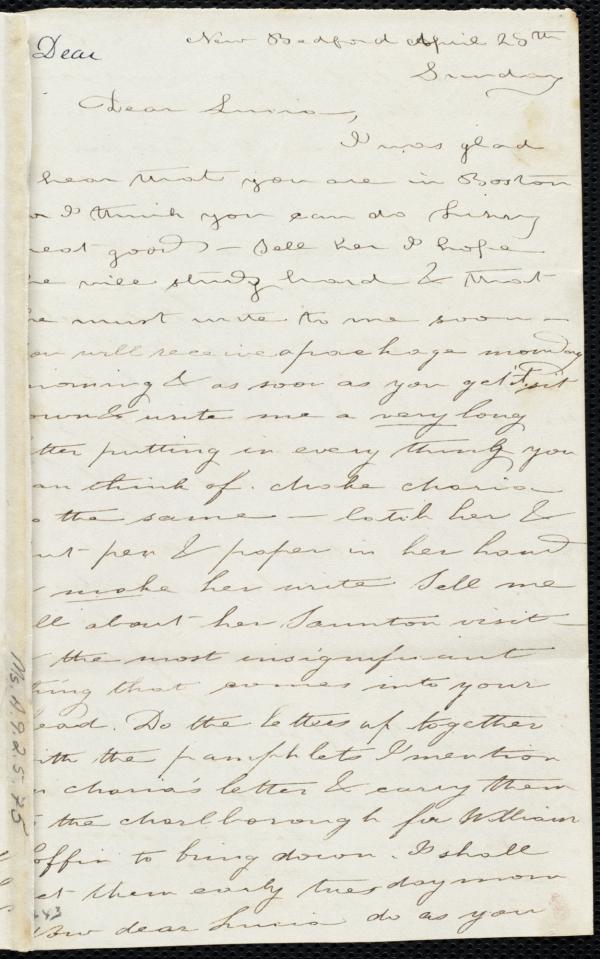 Dear
New Bedford April 28th
Sunday
Dear Lucia,
I was glad
hear that you are in Boston
I think you can do Lizzy
reat good - Tell her I hope
he will study hard & that
he must write to me soon -
ou will receive a package monday
morning & as soon as you get it sit
own & write me a very long
tter putting in every thing you
an think of. Make Maria
the same - Catch her &
ut pen & paper in her hand
make her write Tell me
ll about her Taunton visit -
the most insignificant
thing that comes into your
ead. Do the letters up together
ith the pamphlets I mention
Maria's letter & carry them
the Marlborough for William
offin to bring down. I shall
et them early tuesday morn
Now dear Lucia do as you
Ms. A. 9. 2. 5. 75